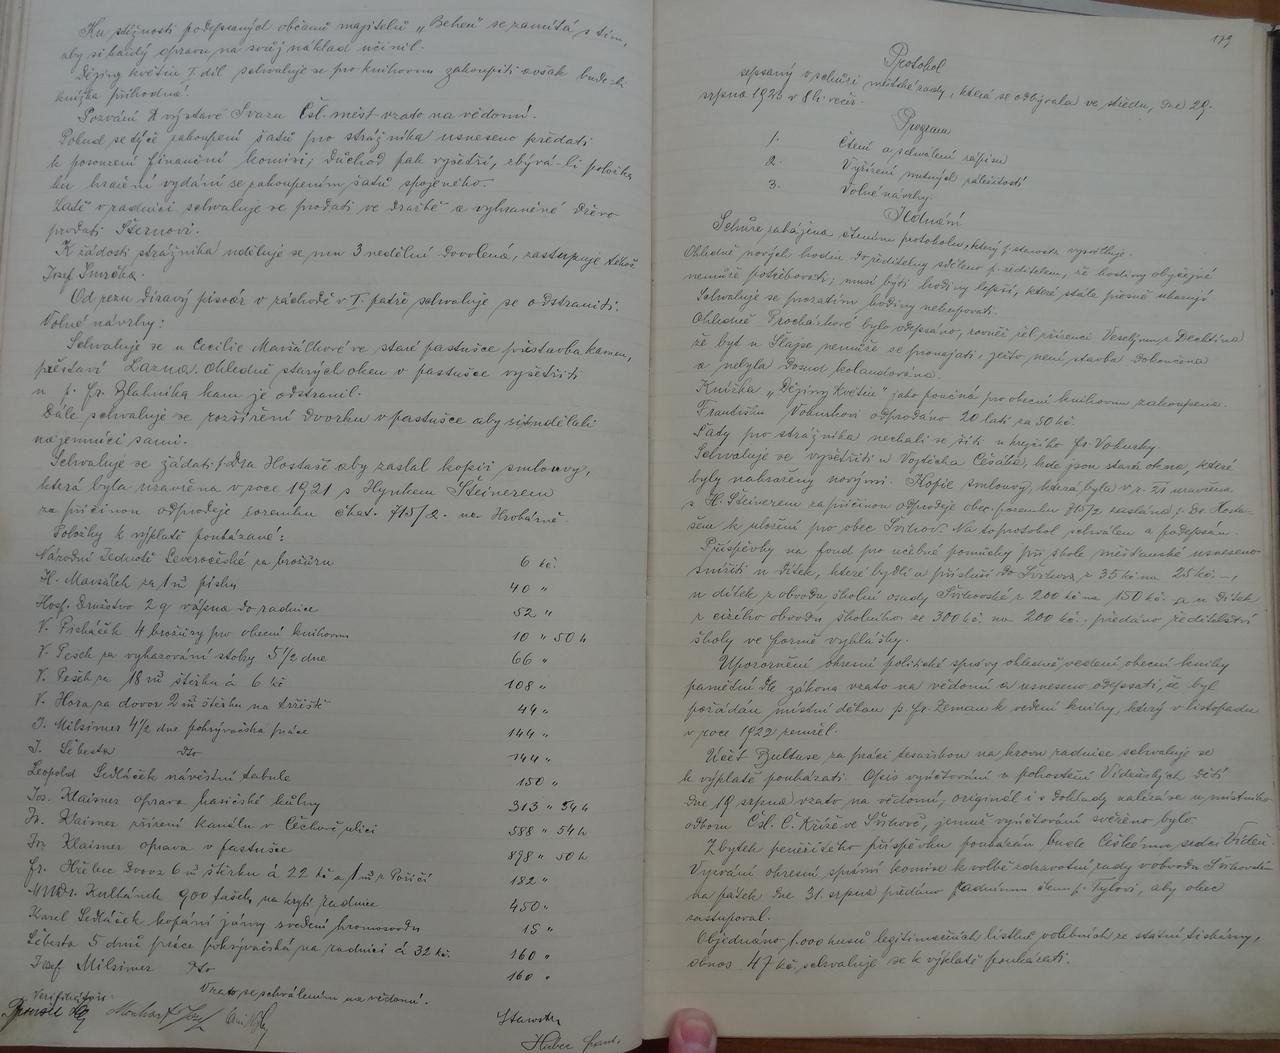 Ku stížnosti podepsaných občanů majitelů „Beheň" se zamítá s tím,
aby si každý opravu na svůj náklad učinil.
Dějiny květin I. díl schvaluje se pro knihovnu zakoupiti avšak bude-li
knížka příhodná.
Pozvání k výstavě Svazu Čsl. měst vzato na vědomí.
Pokud se týče zakoupení šatů pro strážníka usneseno předati
k posouzení finanční komisi; Důchod pak vyšetří, zbývá-li položka
ku hrazení vydání se zakoupením šatů spojeného.
Latě v radnici schvaluje se prodati ve dražbě a vyhraněné dřevo
prodati Šternovi.
K žádosti strážníka uděluje se mu 3 nedělní dovolená, zastupuje téhož
Josef Smrčka.
Od rezu děravý pisoár v záchodě v I. patře schvaluje se odstraniti.
Volné návrhy:
Schvaluje se u Cecilie Maršálkové ve staré pastušce přestavba kamen,
přestaví Lazna. Ohledně starých oken v pastušce vyšetřiti
u p. Fr. Zlahníka kam je odstranil.
Dále schvaluje se rozšíření dvorku v pastušce aby si to udělali
nájemníci sami.
Schvaluje se žádati p. Dra Hostaše aby zaslal kopii smlouvy,
která byla uzavřena v roce 1921 s Hynkem Šteinerem
za příčinou odprodeje pozemku čkat. 715/2. na Hrobárně.
Položky k výplatě poukázané:
Národní Jednotě Severočeské za brožuru 6 kč.
H. Maršálek za 1 m³ písku 40 "
Hosp. Družstvo 2 q vápna do radnice 52 "
V. Pišháček 4 brožury pro obecní knihovnu 10 " 50 h
V. Pesch za vyhazování stoky 5 1/2 dne 66 "
V. Pesch za 18 m³ štěrku á 6 kč 108 "
V. Hora za dovoz 2 m³ štěrku na tržiště 44 "
J. Milsimer 4 1/2 dne pokrývačská práce 144 "
J. Šebesta dto 144 "
Leopold Sedláček návěstní tabule 150 "
Jos. Klaismer oprava hasičské kůlny 313 " 54 h
Jos. Klaimer zřízení kanálu v Čechově ulici 588 " 54 h
Jos. Klaimer oprava v pastušce 898 " 50 h
Fr. Hřelec Dovoz 6 m³ štěrku á 22 kč a 1 m³ z Poříčí 182 "
MUDr. Kulhánek 900 tašek, na krytí radnice 450 "
Karel Sedláček kopání jámy svedení hromosvodu 15 "
Šebesta 5 dnů práce pokrývačská na radnici á 32 kč. 160 "
Josef Milsimer dto 160 "
Vzato se schválením na vědomí.
Verifikátoři:
Starosta
Huber

179
Protokol
sepsaný v schůzi městské rady, která se odbývala ve středu, dne 29.
srpna 1923 v 8 h. večer.
Program
1. Čtení a schválení zápisu
2. Vyřízení nutných záležitostí
3. Volné návrhy.
Jednání
Schůze zahájena čtením protokolu, který p. starosta vysvětluje.
Ohledně nových hodin do ředitelny sděleno p. ředitelem, že hodiny obyčejné
nemůže potřebovati; musí býti hodiny lepší, které stále přesně ukazují
Schvaluje se prozatím hodiny nekupovati.
Ohledně Procházkové bylo odepsáno, rovněž žel. zřízenci Veselýmu z Dechtína
že byt u Slajse nemůže se pronajati, ježto není stavba dokončena
a nebyla dosud kolaudována.
Knížka „Dějiny květin" jako poučná pro obecní knihovnu zakoupena.
Františku Vokurkovi odprodáno 20 latí za 50 kč.
Šaty pro strážníka nechali se šíti u krejčího Fr. Vokurky.
Schvaluje se vyšetřiti u Vojtěcha Češáka, kde jsou stará okna, které
byly nahraženy novými. Kopie smlouvy, která byla v r. 21 uzavřena
s H. Šteinerem za příčinou odprodeje obec. pozemku 715/2 zaslána p. Dr. Hosta-
šem k uložení pro obec Švihov. Na to protokol schválen a podepsán.
Příspěvky na fond pro učebné pomůcky při škole měšťanské usneseno
snížiti u dítek, které bydlí a přísluší do Švihova z 35 kč na 25 kč. –,
u dítek z obvodu školní osady Švihovské z 200 kč na 150 kč. a u dítek
z cizího obvodu školního se 300 kč. na 200 kč. předáno ředitelství
školy ve formě vyhlášky.
Upozornění okresní politické správy ohledně vedení obecní knihy
pamětní dle zákona vzato na vědomí a usneseno odepsati, že byl
požádán místní děkan p. Fr. Zeman k vedení knihy, který v listopadu
v roce 1922 zemřel.
Účet Bultase za práci tesařskou na krovu radnice schvaluje se
k výplatě poukázati. Opis vyúčtování o pohostění Vídeňských dětí
dne 19 srpna vzato na vědomí, originál i s doklady nalézá se u místního
odboru Čsl. Č. Kříže ve Švihově, jemuž vyúčtování svěřeno bylo.
Zbytek peněžitého příspěvku poukázán bude Českému srdci Vídeň.
Vyzvání okresní správní komise k volbě zdravotní rady v obvodu Švihovském
na pátek dne 31. srpna předáno radnímu členu p. Tylovi, aby obec
zastupoval.
Objednáno 1.000 kusů legitimačních lístků volebních ze státní tiskárny,
obnos 47 kč, schvaluje se k výplatě poukázati.